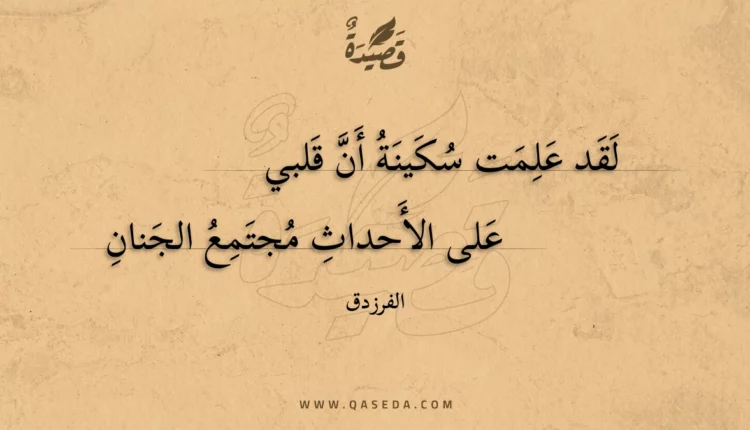 قَصِيدَةٌ
لَقَد عَلِمَت سُكَينَةُ أَنَّ قَلبي
عَلى الأَحداثِ مُجتَمِعُ الجَنانِ
الفرزدق
WWW.QASEDA.COM